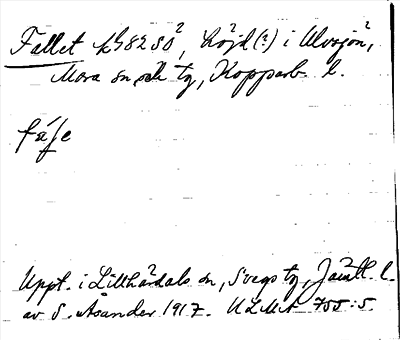 Fallet k582S0², höjd(?) i Ulvsjön,
Mora sn och tg, Kopparb. l.
fáʃe
Uppt. i Lillhärdals sn, Svegs tg, Jämtl. l.
av S. Åsander 1917. ULMA 755:5.